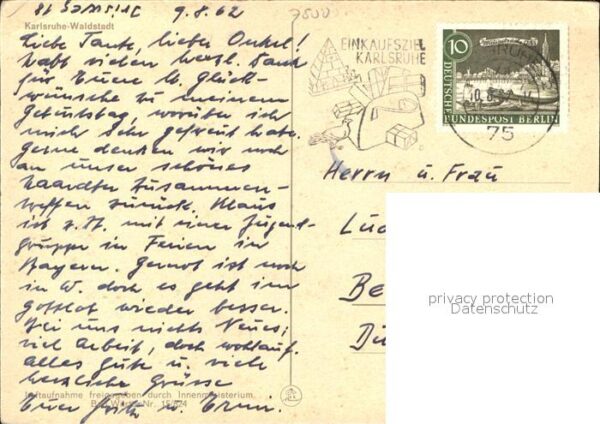 9.8.62
75000
Karlsruhe-Waldstadt
Liebe Tante, lieber Onkel!
Habt vielen herzl. Dank
für Euere lb. Glück-
wünsche zu meinem
Geburtstag, worüber ich
mich sehr gefreut habe.
Gerne denken wir noch
an unser schönes
Haardter Zusammen-
treffen zurück. Klaus
ist z. Zt. mit einer Jugend-
gruppe in Ferien in
Bayern. Gernot ist noch
in W. doch es geht ihm
gottlob wieder besser.
Bei uns nichts Neues;
viel Arbeit, doch wohlauf.
Alles Gute u. viele
herzliche Grüsse
Euer u.
Luftaufnahme freigegeben durch Innenministerium
Nr.
EINKAUFSZIEL
KARLSRUHE
10
DEUTSCHE
BUNDESPOST BERLIN
75
Herrn u. Frau
privacy protection
Datenschutz